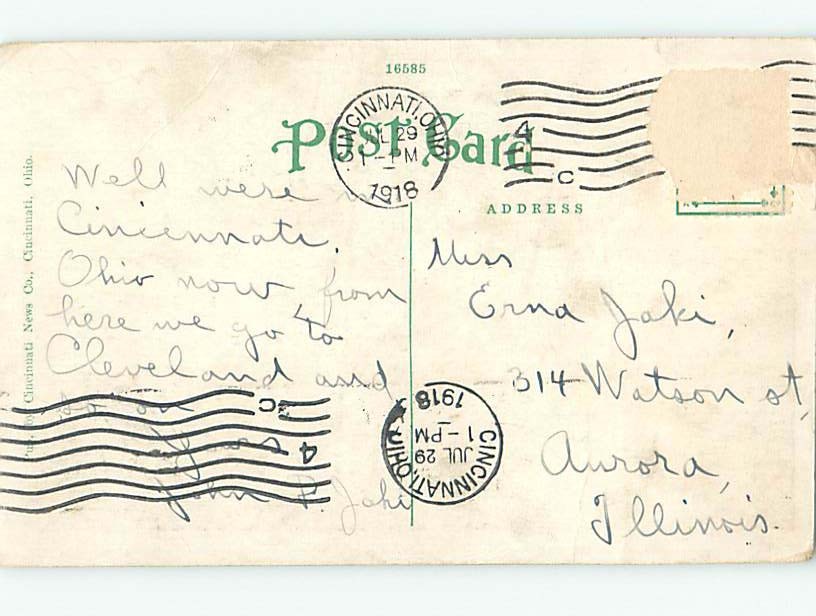 16585
Post Card
CINCINNATI, OHIO
JUL 29
1-PM
1918
4
C
ADDRESS
Pub. by Cincinnati News Co., Cincinnati, Ohio.
Well were
Cincennati,
Ohio now, from
here we go to
Cleveland and
so on
Yours
John P Jaki
Miss
Erna Jaki,
314 Watson st,
Aurora,
Illinois.
CINCINNATI, OHIO
JUL 29
1-PM
1918
4
C